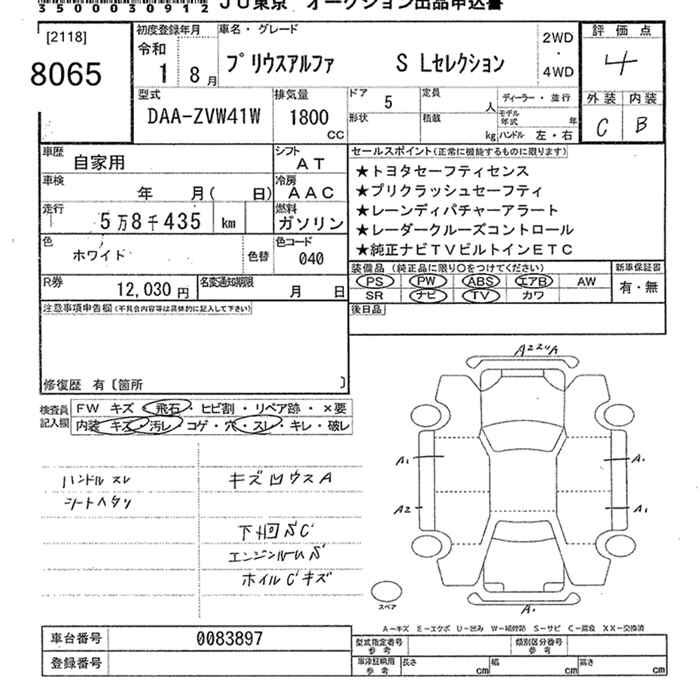 3500030912 JU東京 オークション出品申込書
[2118]
8065
初度登録年月
令和
1 8月
車名・グレード
プリウスアルファ S Lセレクション
2WD
・
4WD
評価点
4
外装 内装
C B
型式
DAA-ZVW41W
排気量
1800
CC
ドア
5
定員
人
形状
積載
kg
ディーラー・並行
モデル
年式
年
ハンドル 左・右
車歴
自家用
シフト
AT
車検
年 月( 日)
冷房
AAC
走行
5万8千435 km
燃料
ガソリン
色
ホワイト
色替
色コード
040
R券
12,030円
名変通知期限
月 日
セールスポイント(正常に機能するものに限ります)
★トヨタセーフティセンス
★プリクラッシュセーフティ
★レーンディパチャーアラート
★レーダークルーズコントロール
★純正ナビTVビルトインETC
装備品(純正品に限り○をつけてください)
PS PW ABS エアB AW
SR ナビ TV カワ
新車保証書
有・無
後日品
注意事項申告欄(不具合内容等は具体的に記入して下さい)
修復歴 有〔箇所 〕
検査員
記入欄
FW キズ・飛石・ヒビ割・リペア跡・×要
内装 キズ・汚レ・コゲ・穴・スレ・キレ・破レ
ハンドルスレ
シートヘタリ
キズ凹ウスA
下廻SC
エンジンルームS
ホイルCキズ
A1
A2
A1
A1
A1
スペア
A−キズ E−エクボ U−凹み W−補修跡 S−サビ C−腐蝕 XX−交換済
車台番号
0083897
登録番号
型式指定番号
参考
類別区分番号
参考
車庫証明用
参考
長さ
cm
幅
cm
高さ
cm